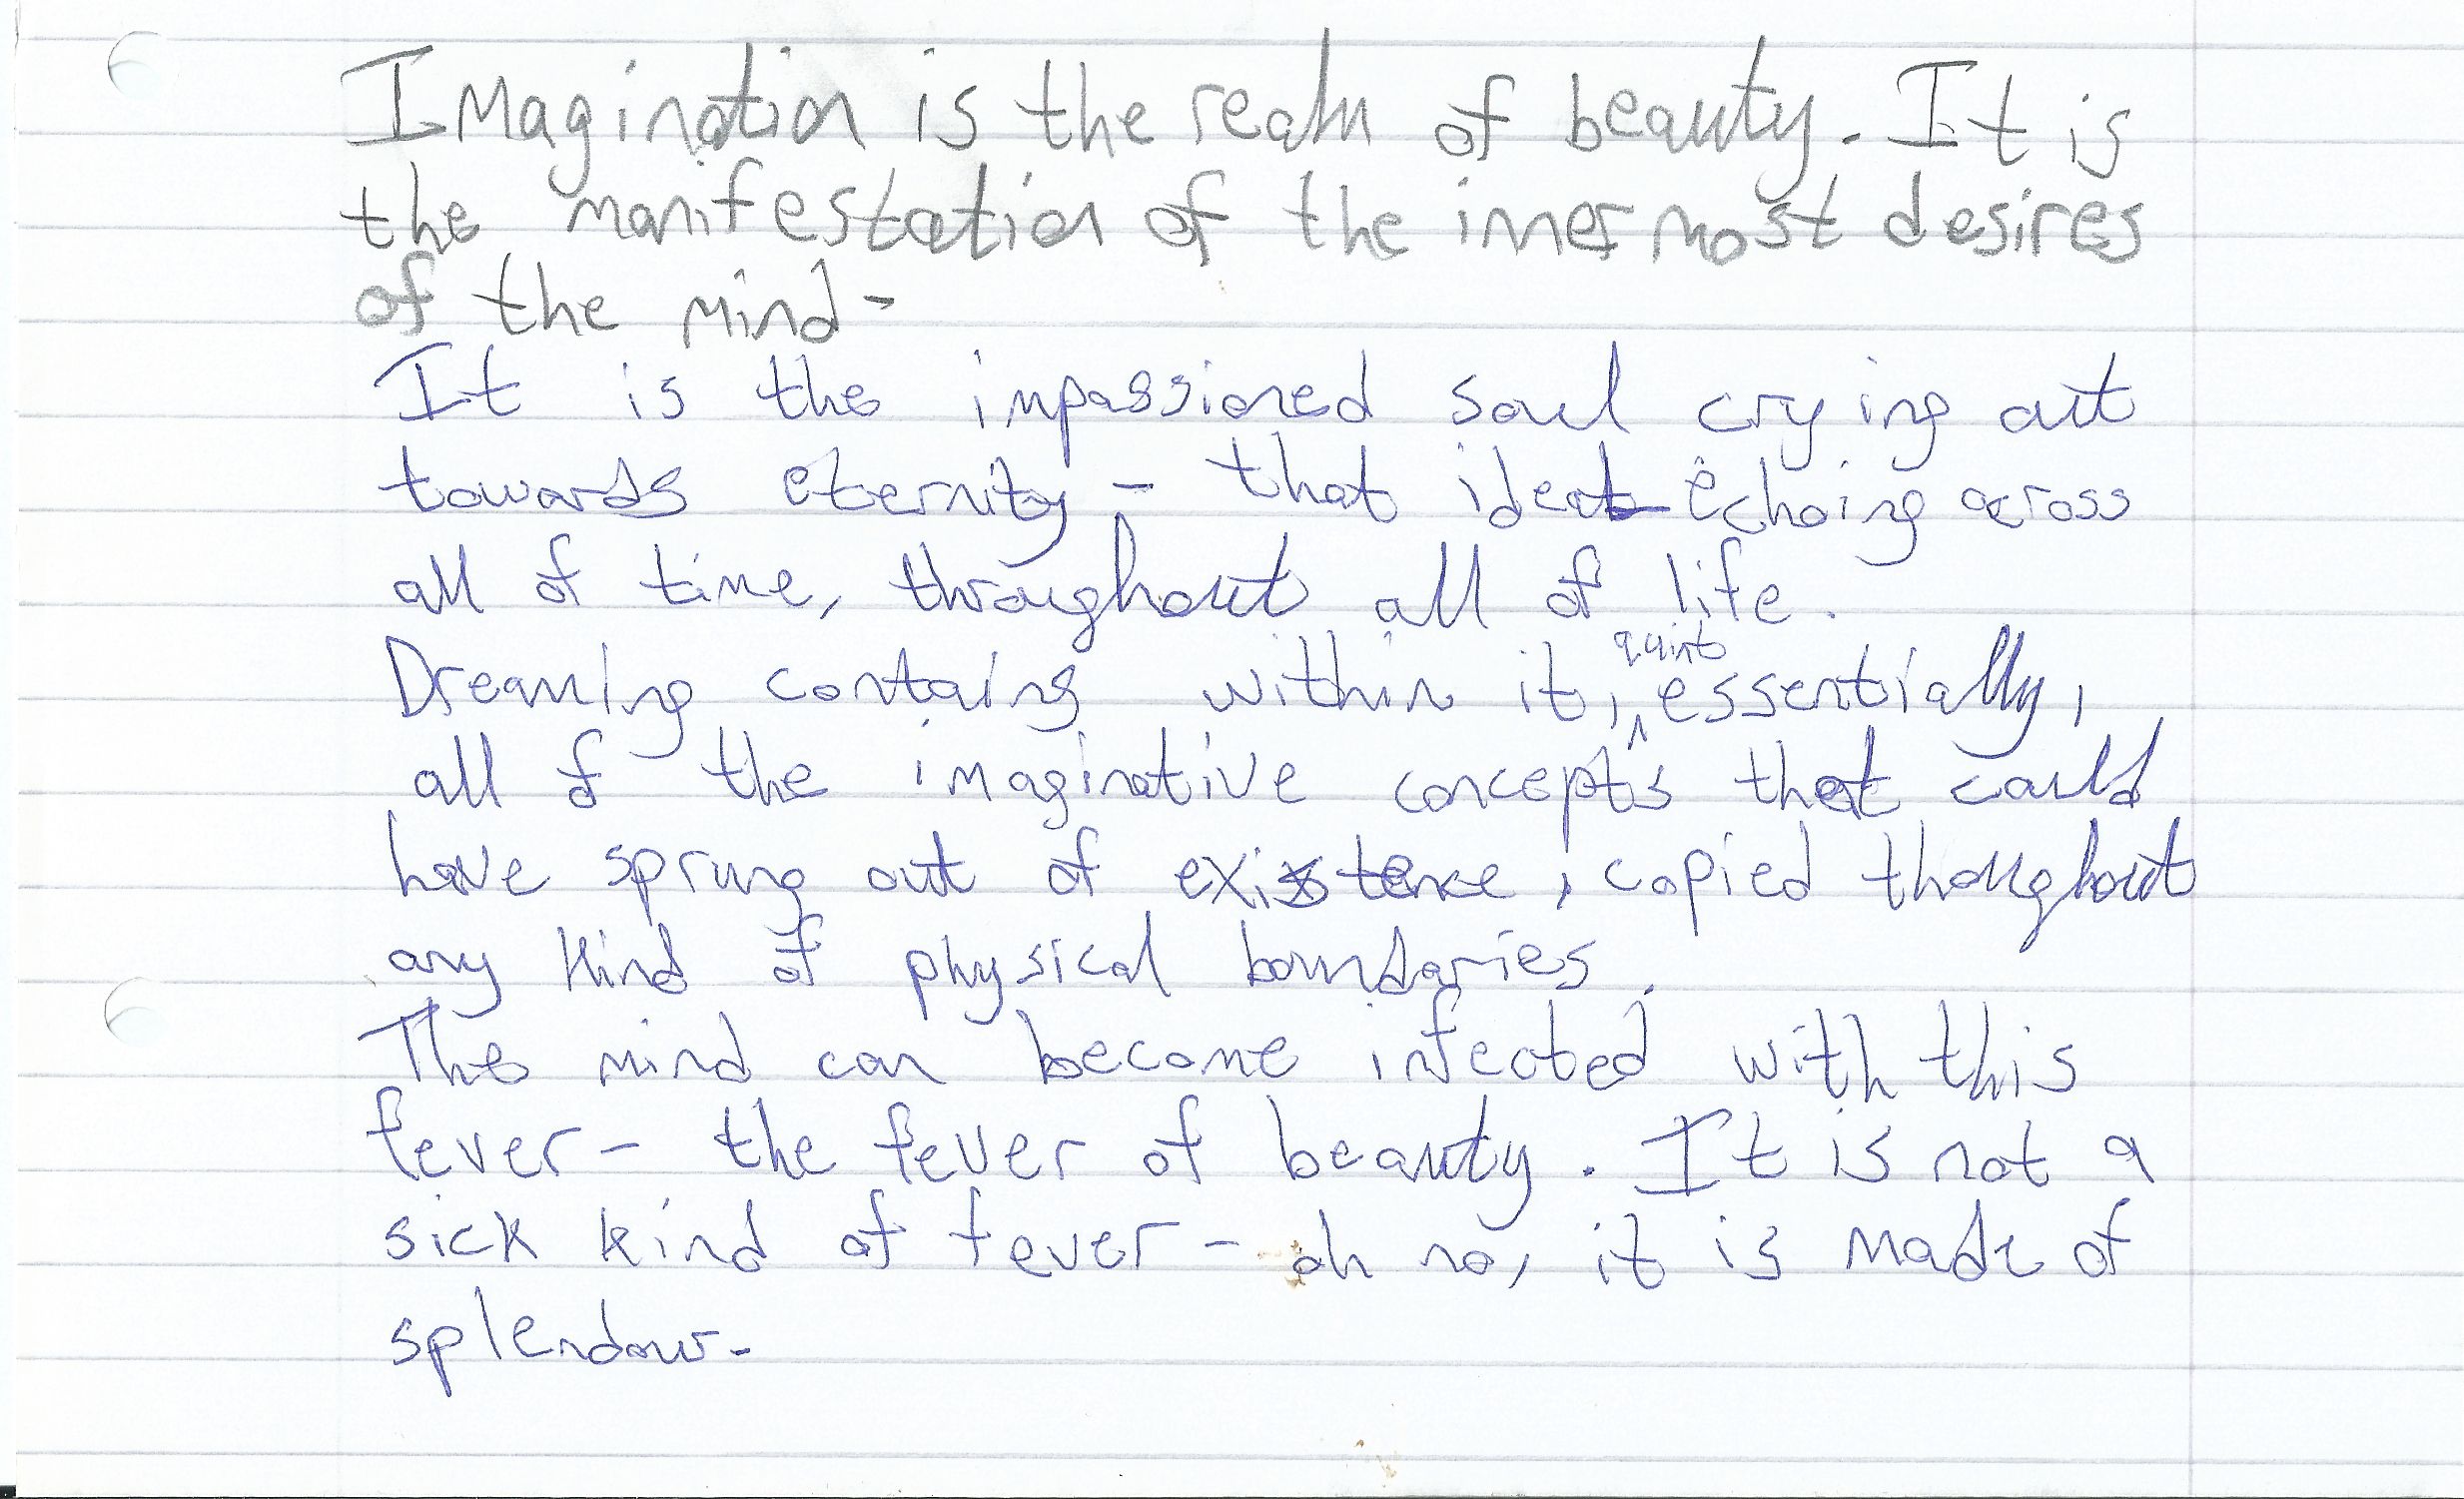 Imagination is the realm of beauty. It is
the manifestation of the innermost desires
of the mind-
It is the impassioned soul crying out
towards eternity - that ideal echoing across
all of time, throughout all of life.
Dreaming contains within it, quint essentially,
all of the imaginative concepts that could
have sprung out of existence, copied thoughout
any kind of physical boundaries.
The mind can become infected with this
fever - the fever of beauty. It is not a
sick kind of fever - oh no, it is made of
splendour.